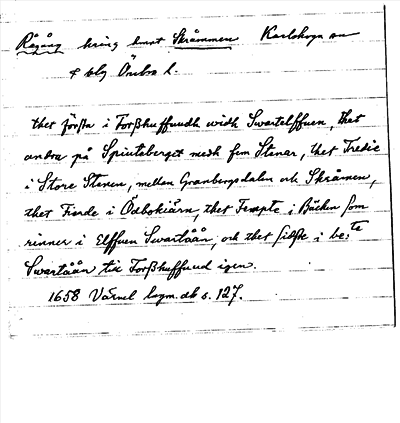 Rågång kring hmt Skråmmen Karlskoga sn
& blg Örebro l.
thet förste i Forßhuffuudh widh Swartelffuen, thet
andra på Spirutaberget medh fem Stenar, thet Tredie
i Store Stenen, mellan Granbergsdalen och Skråmen,
thet Fierde i Ödbokiärn, thet Fempte i Bäcken som
rinner i Elffuen Swartåån, och thet siette i be:te
Swartåån till Forßhuffuud igen.
1658 Värml lagm. db s. 127.